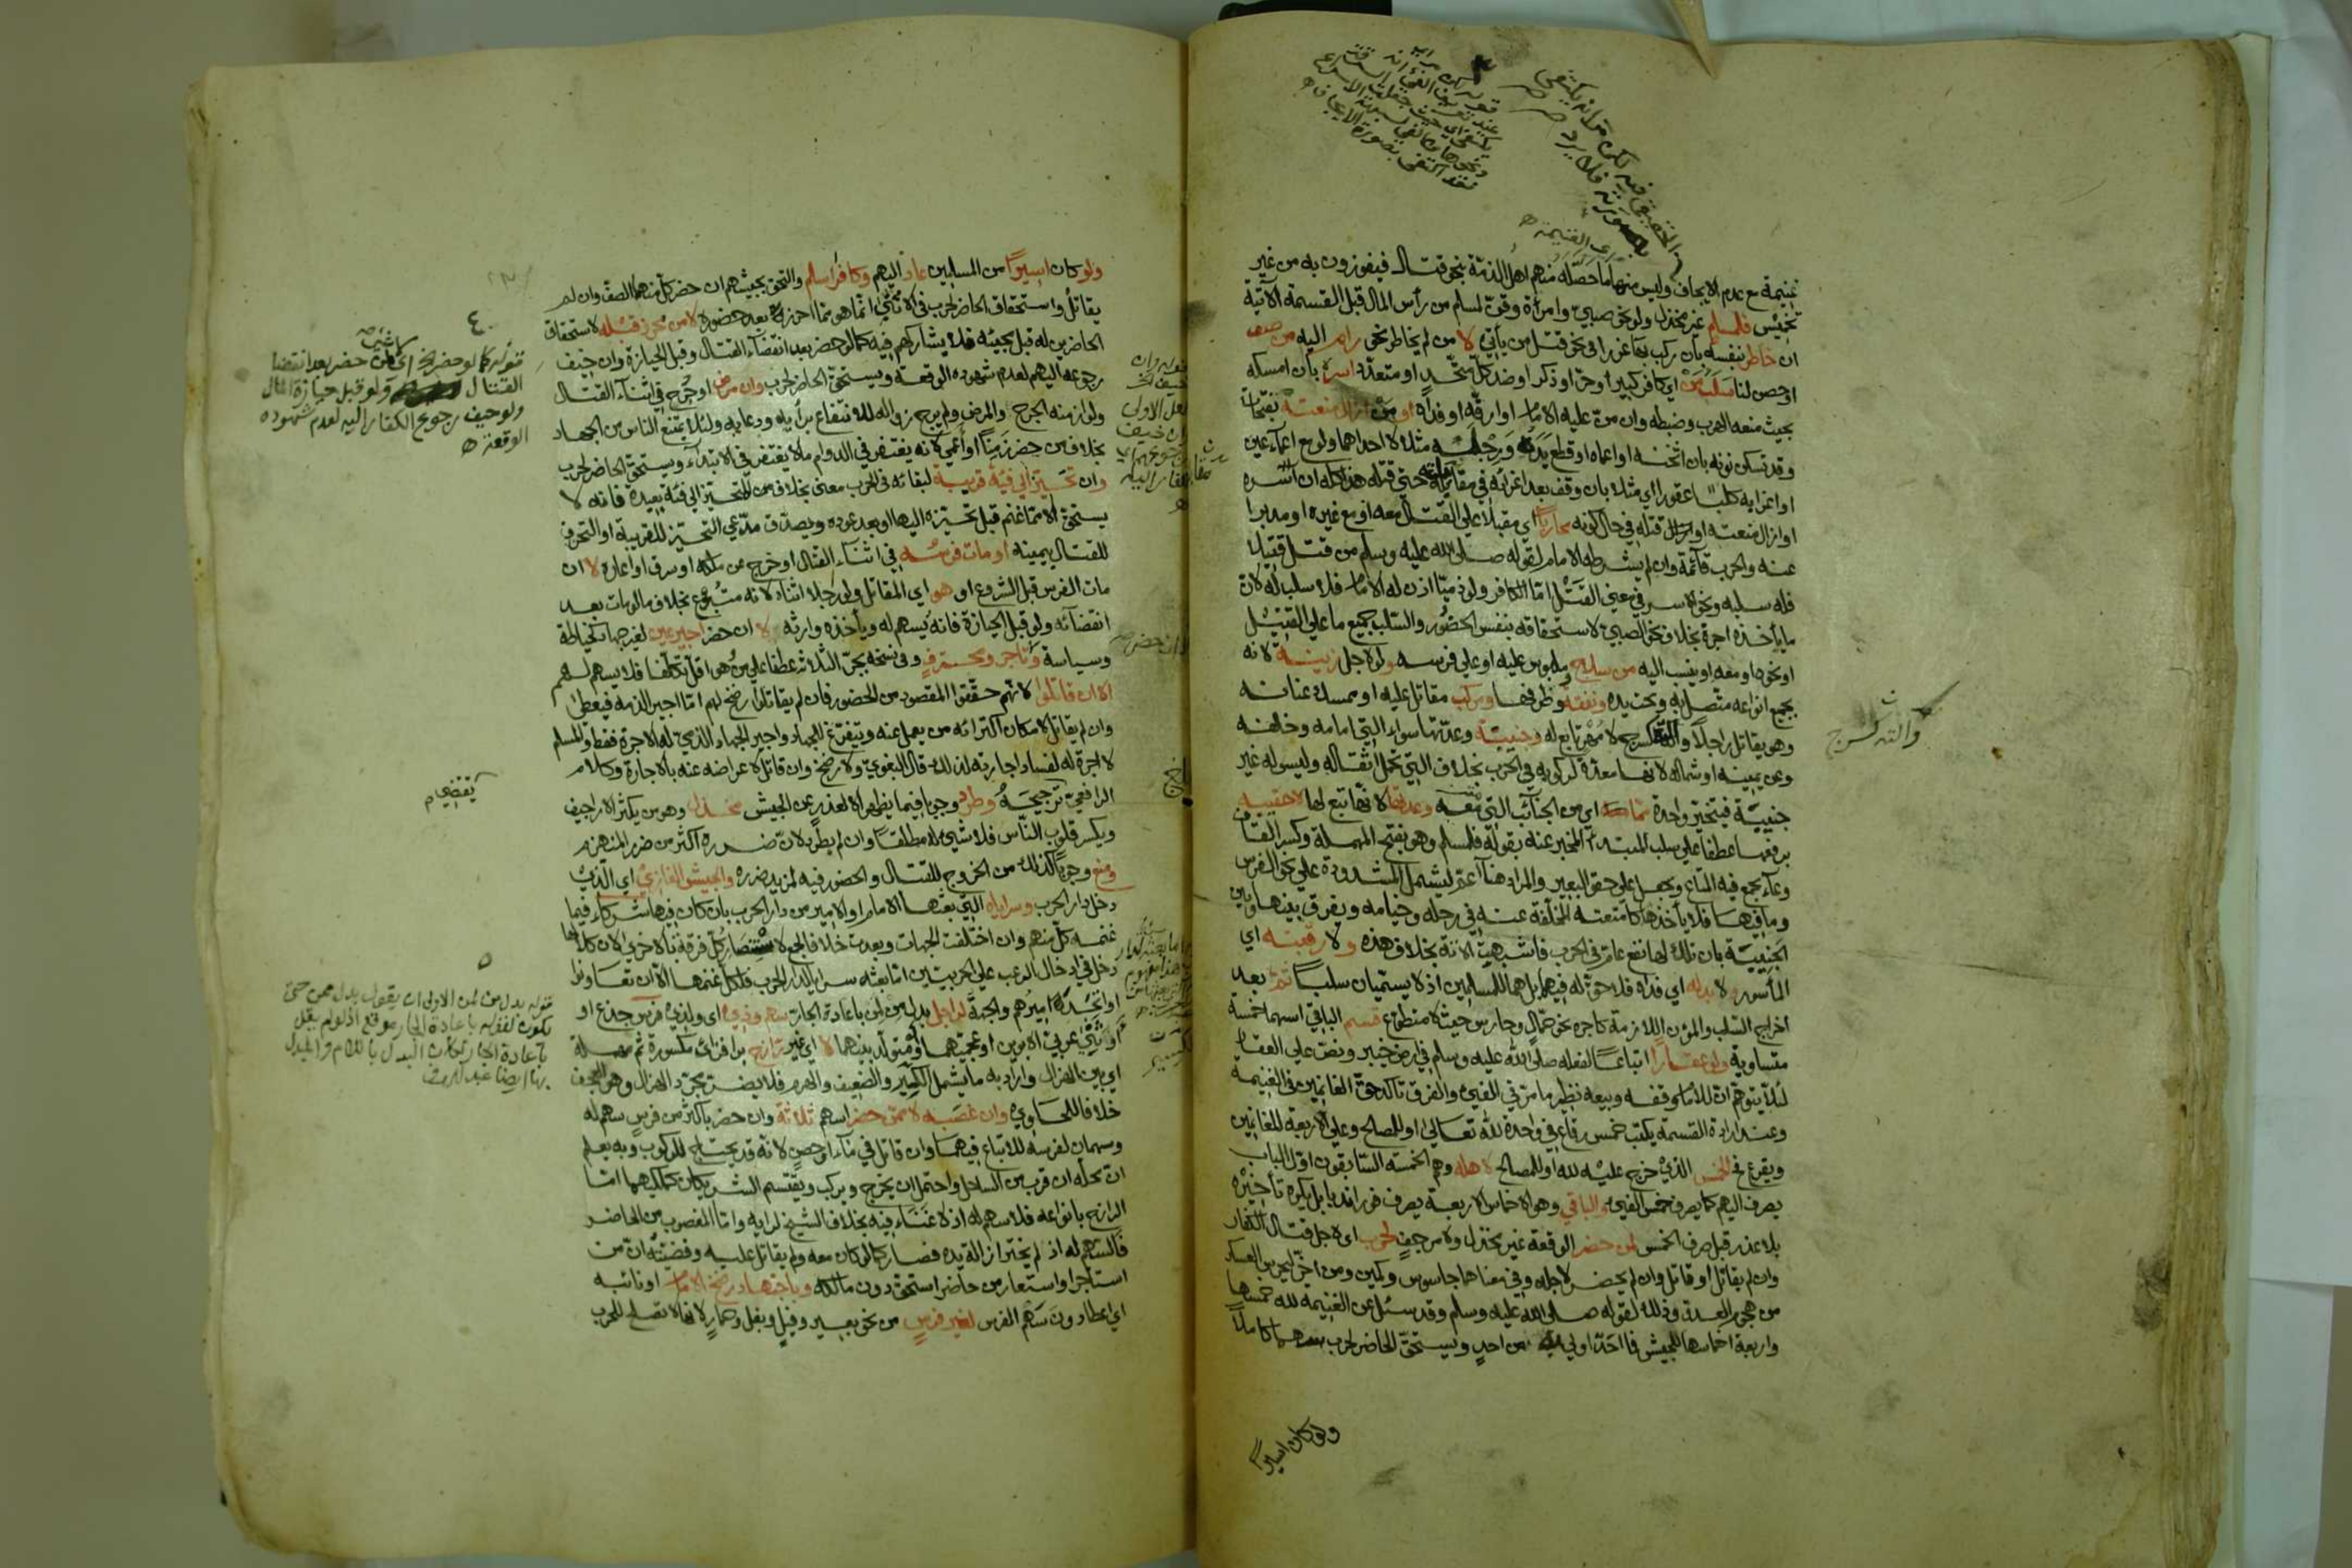 غنيمة مع عدم الايجاف وليس منها ما حصّله منهم اهل الذمّة بنحو قتال فيفوزون به من غير
تخميس فلمسلم غير مخذل ولو نحو صبيّ وامرأة وقنّ لمسلم من رأس المال قبل القسمة الآتية
ان خاطر بنفسه بأن ركب بها غررا في نحو قتل من يأتي لا من لم يخاطر نحو رام اليه من صف
او حصن لنا سلب من اي كافر كبير او حرّ او ذكر او ضد كلّ متّحد او متعدّد اسره بأن امسكه
بحيث منعه الهرب وضبطه وان منّ عليه الامام او ارقّه او فداه او من ازال منعته بفتحات
وقد تسكن نونه بان اثخنه او اعماه او قطع يديه ورجليه مثلا لا احداهما ولو مع اعماء عين
او اغرى به كلبا عقورا اي مثلا بان وقف بعد اغرائه في مقابلته حتى قتله هذا كله ان اسره
او ازال منعته او قتله في حال كونه محاربا اي مقبلا على القتال معه او مع غيره او مدبرا
عنه والحرب قائمة وان لم يشرطه الامام لقوله صلى الله عليه وسلم من قتل قتيلا
فله سلبه ونحو الاسر في معنى القتل امّا الكافر ولو ذميّا اذن له الامام فلا سلب له لان
ما يأخذه اجرة بخلاف نحو الصبيّ لاستحقاقه بنفس الحضور والسّلب جميع ما على القتيل
او نحوه او معه او ينسب اليه من سلاح وملبوس عليه او على فرسه ولو لاجل زينة لانه
بجميع انواعه متصل به وتحت يده ونفقة وظرفها ومركب مقاتل عليه او ممسك عنانه
وهو يقاتل راجلا وآلته كسرج لا مهر تابع له وجنيبة وعدّتها سواء التي امامه وخلفه
وعن يمينه او شماله لانها معدّة لركوبه في الحرب بخلاف التي تحمل اثقاله وليس له غير
جنيبة فيتخيّر واحدة ممّا معه اي من الجنائب التي معه وعدتها لانها تبع لها لا حقيبه
برفعها عطفا على سلب المبتدأ المخبر عنه بقوله فلمسلم وهو بفتح المهملة وكسر القاف
وعاء يجمع فيه المتاع ويجعل على حقو البعير والمراد هنا اعمّ ليشمل المشدودة على نحو الفرس
وما فيها فلا يأخذها كامتعته المخلّفة عنه في رحله وخيامه ويفرق بينها وبين
الجنيبة بان تلك لها نفع عامّ في الحرب فاشبهت الآتة بخلاف هذه ولا رقبته اي
المأسور ولا بدله اي فداه فلا حقّ له فيهما بل هما للمسلمين اذ لا يسمّيان سلبا ثمّ بعد
اخراج السّلب والمؤن اللازمة كاجرة نحو حمّال وحارس حيث لا متطوع قسم الباقي اسهما خمسة
متساوية ولو عقارا اتباعا لفعله صلى الله عليه وسلم في ارض خيبر ونصّ على العقار
لئلّا يتوهّم ان للامام وقفه وبيعه نظير ما مرّ في الفيء والفرق تأكد حقّ الغانمين في الغنيمة
وعند ارادة القسمة يكتب خمس رقاع في واحدة لله تعالى او للمصالح وعلى الاربعة للغانمين
ويقرع في الخمس الذي خرج عليه لله او للمصالح لاهله وهم الخمسة السّابقون اوّل الباب
يصرف اليهم كما يصرف خمس الفيء والباقي وهو الاخماس الاربعة يصرف فورا ندبا بل يكره تأخيره
بلا عذر قبل صرف الخمس لمن حضر الوقعة غير مخذل ولا مرجف لحرب اي لاجل قتال الكفار
وان لم يقاتل او قاتل وان لم يحضر لاجله وفي معناها جاسوس وكمين ومن اخّر ليحرس العسكر
من هجوم العدو وذلك لقوله صلى الله عليه وسلم وقد سئل عن الغنيمة لله خمسها
واربعة اخماسها للجيش فما احد اولى به من احد ويستحقّ الحاضر لحرب سهما كاملا
ولو كان اسيرا
وآلته كسرج
ولو كان اسيرا من المسلمين عاد اليهم وكافر اسلم والتحق بجيشهم ان حضر كلّ منهما الصفّ وان لم
يقاتل واستحقاق الحاضر لحرب في كلّ ما يأتي انّما هو ممّا احرز بعد حضوره لا من محرز قبله لاستحقاق
الحاضرين له قبل مجيئه فلا يشاركهم فيه كما لو حضر بعد انقضاء القتال وقبل الحيازة وان خيف
رجوعه اليهم لعدم شهوده الوقعة ويستحقّ الحاضر لحرب وان مرض او جرح في اثناء القتال
ولو ازمنه الجرح والمرض ولم يرج زواله للانتفاع برأيه ودعايه ولئلا يمتنع الناس من الجهاد
بخلاف من حضر زمنا او اعمى لانه يغتفر في الدوام ما لا يغتفر في الابتداء ويستحقّ الحاضر لحرب
وان تحيّز الى فئة قريبة لبقائه في الحرب معنى بخلاف من تحيّز الى فئة بعيدة فانه لا
يستحقّ الا ممّا غنم قبل تحيّزه اليها او بعد عوده ويصدّق مدّعي التحيّز للقريبة او التحرف
للقتال بيمينه او مات فرسه في اثناء القتال او خرج عن ملكه او سرق او اعاره لا ان
مات الفرس قبل الشروع او هو اي المقاتل ولو رجلا اثناءه لانه متبوع بخلاف ما لو مات بعد
انقضائه ولو قبل الحيازة فانه يسهم له ويأخذه وارثه لا ان حضر اجير عين لغير جهاد كخياطة
وسياسة وتاجر ومحترف وفي نسخة بجرّ الثلاثة عطفا على من هو اقلّ تكلّفا فلا يسهم لهم
الا ان قاتلوا لانهم حقّقوا المقصود من الحضور فان لم يقاتلوا رضخ لهم امّا اجير الذمة فيعطى
وان لم يقاتل لامكان اكترائه من يعمل عنه ويتفرّغ للجهاد واجير الجهاد الذمي له الاجرة فقط والمسلم
لا اجرة له لفساد اجارته له لذلك قال البغوي ولا رضخ وان قاتل لاعراضه عنه بالاجارة وكلام
الرافعيّ ترجيحه وطرد وجوبا فيما يظهر الا لعذر عن الجيش مخذل وهو من يكثر الاراجيف
ويكسر قلوب النّاس فلا شيء له مطلقا وان لم يطرد لانّ ضرره اكثر من ضرر المنهزم
ومنع وجوبا كذلك من الخروج للقتال والحضور فيه لمزيد ضرره والجيش الغازي اي الّذي
دخل دار الحرب وسراياه التي بعثها الامام او الامير من دار الحرب بان كان فيها شركاء فيما
غنمه كلّ منهم وان اختلفت الجهات وبعدت خلافا لجمع لاستنصار كلّ فرقة بالاخرى لان كلّا
دخل في ادخال الرعب على الحربيين امّا بعثه سرايا لدار الحرب فلكلّ غنمها الا ان تعاونوا
او اتّحد اميرهم والجهة لراجل بدل من لمن باعادة الجارّ سهم وذي اي ولذي فرس جذع او
او ثنيّ عربيّ الابوين او عجميّهما او متولّد بينهما لا اي غير رازح براء فزاي مكسورة ثم مهملة
اي بيّن الهزال واراد به ما يشمل الكسير والضعيف والهرم فلا يضرّ مجرّد الهزال وهو العجف
خلافا للحاوي وان غصبه لا ممن حضر اسهم ثلاثة وان حضر باكثر من فرس سهم له
وسهمان لفرسه للاتباع فيهما وان قاتل في ماء او حصن لانه قد يحتاج للركوب وبه يعلم
ان محله ان قرب من الساحل واحتمل ان يخرج ويركب ويقتسم الشريكان كملكيهما امّا
الرازح بانواعه فلا سهم له اذ لا غناء فيه بخلاف الشيخ لرايه وامّا المغصوب من الحاضر
فالسهم له اذ لم يختر ازالة يده فصار كما لو كان معه ولم يقاتل عليه وقضيّته ان من
استأجر او استعار من حاضر استحق دون مالكه وباجتهاد رضخ الامام او نائبه
اي اعطا دون سهم الفرس لغير فرس من نحو بعير وفيل وبغل وحمار لانها لا تصلح للحرب
قوله كما لو حضر الخ اي كمن حضر بعد انقضا
القتال ولو قبل حيازة المال
ولو خيف رجوع الكفار اليه لعدم شهوده
الوقعة
يقتضي م
قوله بدل من لمن الاولى ان يقول بدل ممن حتى
يكون لقوله باعادة الجار موقع اذ لو لم يقل
باعادة الجار لكان